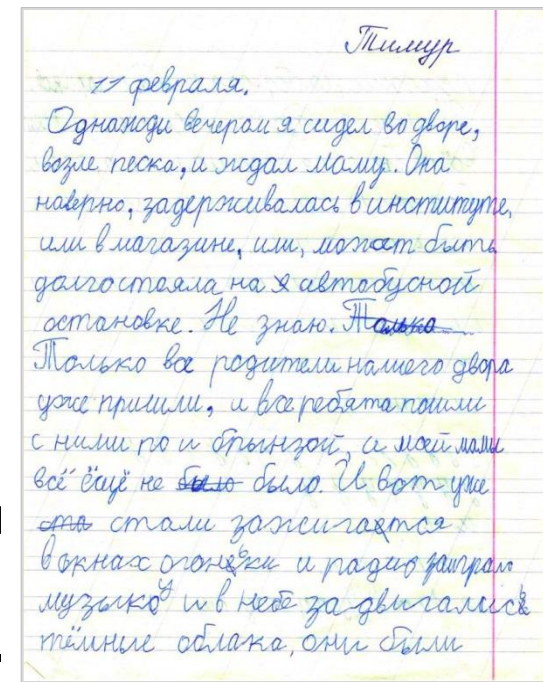 Тимур
11 февраля.
Однажды вечером я сидел во дворе,
возле песка, и ждал маму. Она
наверно, задерживалась в институте,
или в магазине, или, может быть
долго стояла на я автобусной
остановке. Не знаю. Только
Только все родители нашего двора
уже пришли, и все ребята пошли
с ними по и брынзой, а моей мамы
всё ёщё не было было. И вот уже
ста стали зажигатся
в окнах огоньки и радио заиграло
музыку и в небе задвигались
тёмные облака, они были